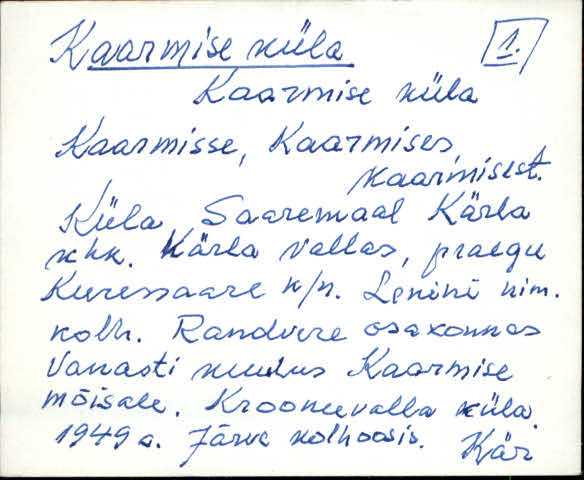 Kaarmise küla 1.
Kaarmise küla
Kaarmisse, Kaarmises,
Kaarmisest.
Küla Saaremaal Kärla
khk. Kärla vallas, praegu
Kuressaare k/n. Lenini nim.
kolh. Randvere osakonnas
Vanasti kuulus Kaarmise
mõisale. Kroonuvalla küla.
1949 a. Järve kolhoosis. Kär